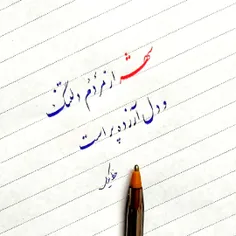 شهر از مردم دلتنگ
و دل آزرده پر است